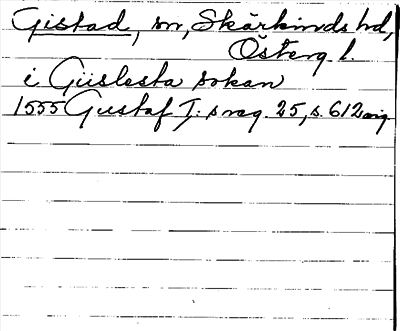 Gistad, sn, Skärkinds hd,
Österg. l.
i Giislesta sokan
1555 Gustaf I:s reg. 25, s. 612 orig.